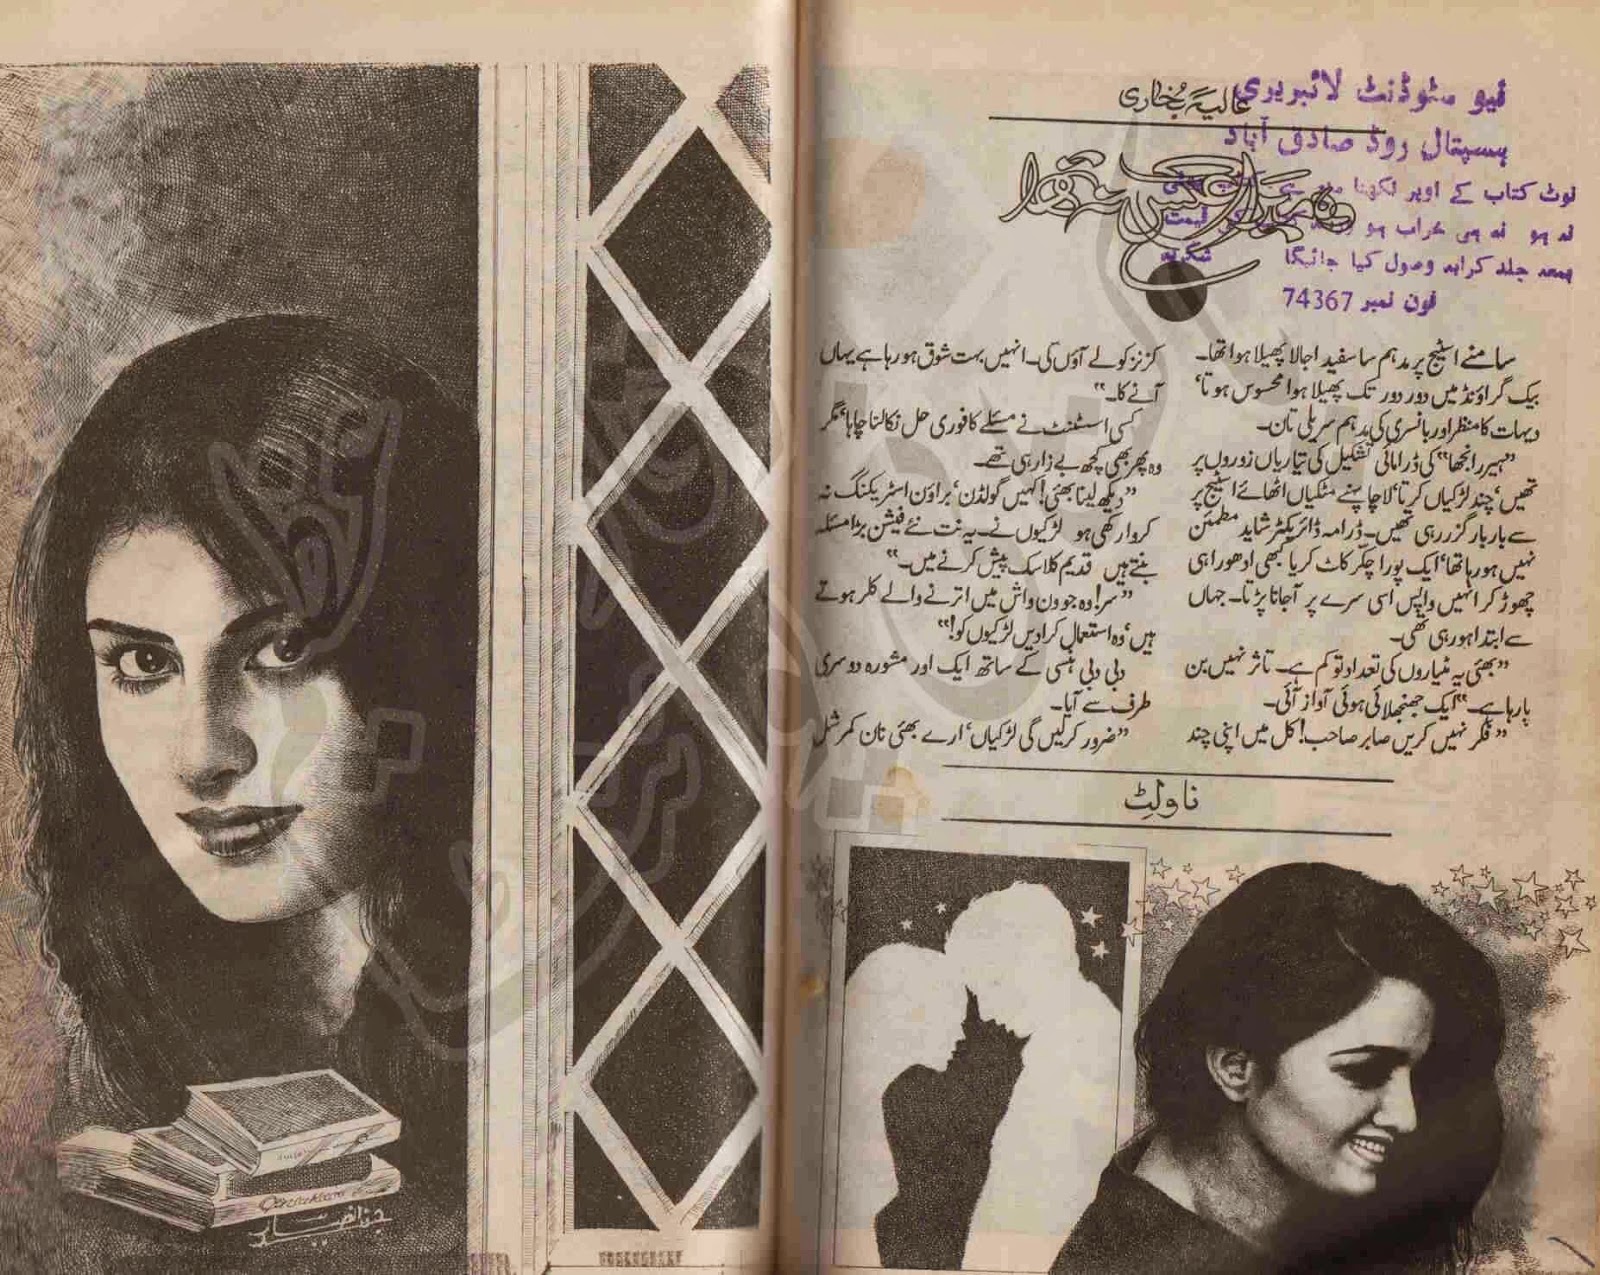 عالیہ بخاری
نیو سٹوڈنٹ لائبریری
ہسپتال روڈ صادق آباد
نوٹ کتاب کے اوپر لکھنا
نہ ہو نہ ہی خراب ہو قیمت
بمعہ جلد کرایہ وصول کیا جائیگا شکریہ
فون نمبر 74367
سامنے اسٹیج پر مدہم سا سفید اجالا پھیلا ہوا تھا۔
بیک گراؤنڈ میں دور دور تک پھیلا ہوا محسوس ہوتا،
دیہات کا منظر اور بانسری کی مدہم سریلی تان۔
”ہیر رانجھا“ کی ڈرامائی تشکیل کی تیاریاں زوروں پر
تھیں، چند لڑکیاں کرتا، لاچا پہنے مٹکیاں اٹھائے اسٹیج پر
سے بار بار گزر رہی تھیں۔ ڈرامہ ڈائریکٹر شاید مطمئن
نہیں ہو رہا تھا، ایک پورا چکر کاٹ کر یا کبھی ادھورا ہی
چھوڑ کر انہیں واپس اسی سرے پر آجانا پڑتا۔ جہاں
سے ابتدا ہو رہی تھی۔
”بھئی یہ مٹیاروں کی تعداد تو کم ہے۔ تاثر نہیں بن
پا رہا ہے۔“ ایک جھنجھلائی ہوئی آواز آئی۔
”فکر نہیں کریں صابر صاحب! کل میں اپنی چند
کزنز کو لے آؤں گی۔ انہیں بہت شوق ہو رہا ہے یہاں
آنے کا۔“
کسی اسسٹنٹ نے مسئلے کا فوری حل نکالنا چاہا، مگر
وہ پھر بھی کچھ بے زار ہی تھے۔
”دیکھ لینا بھئی! کہیں گولڈن، براؤن اسٹریکنگ نہ
کروا رکھی ہو لڑکیوں نے۔ یہ نت نئے فیشن بڑا مسئلہ
بنتے ہیں قدیم کلاسک پیش کرنے میں۔“
”سر! وہ جو ون واش میں اترنے والے کلر ہوتے
ہیں، وہ استعمال کرا دیں لڑکیوں کو!“
دبی دبی ہنسی کے ساتھ ایک اور مشورہ دوسری
طرف سے آیا۔
”ضرور کرلیں گی لڑکیاں، ارے بھئی نان کمرشل
ناولٹ